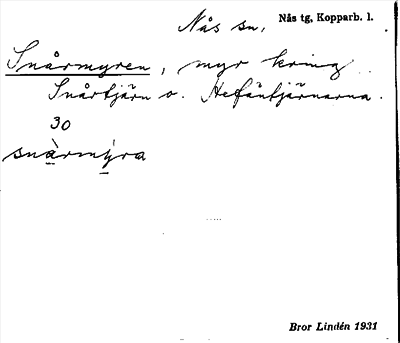 Nås sn. Nås tg, Kopparb. l.
Snårmyren, myr kring
Snårtjärn o. Hefäntjärnarna.
30
snàrmýra
Bror Lindén 1931